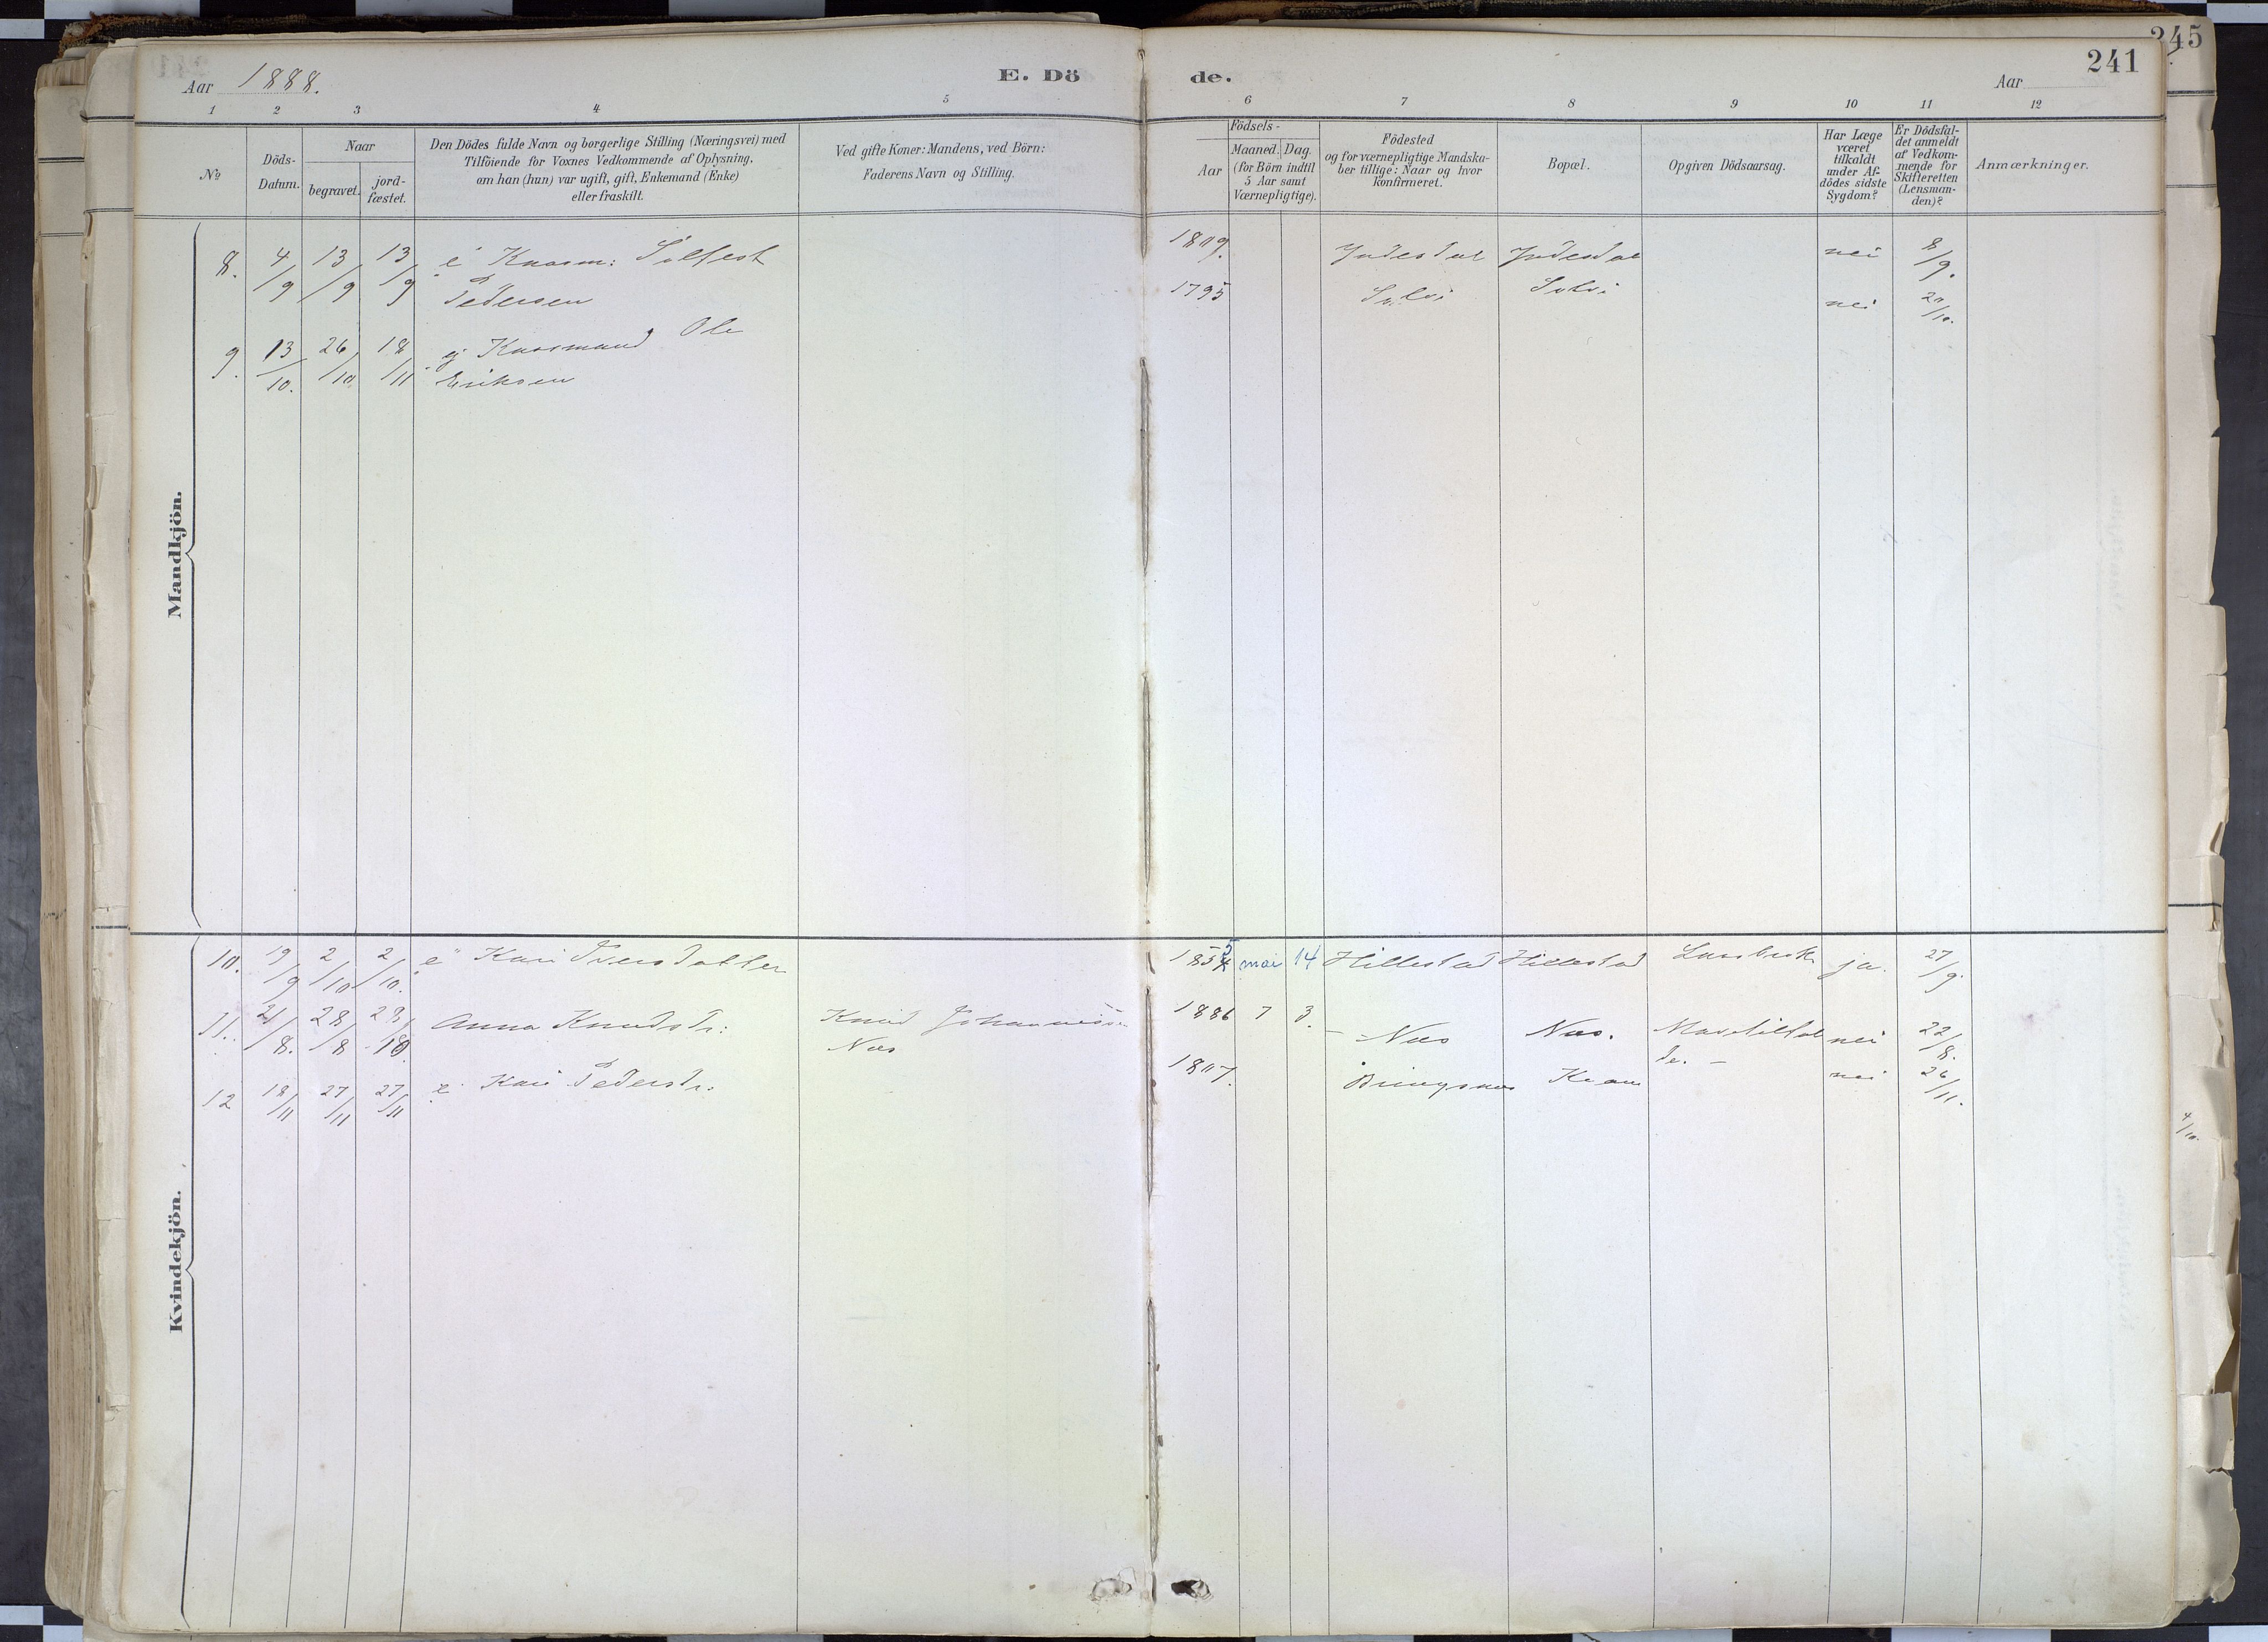 245
241
Aar 1888.
E. Dö de.
Aar
1 2 3 4 5 6 7 8 9 10 11 12
No
Döds-
Datum.
Naar
begravet.
jord-
fæstet.
Den Dödes fulde Navn og borgerlige Stilling (Næringsvei) med
Tilföiende for Voxnes Vedkommende af Oplysning,
om han (hun) var ugift, gift, Enkemand (Enke)
eller fraskilt.
Ved gifte Koner: Mandens, ved Börn:
Faderens Navn og Stilling.
Födsels-
Aar
Maaned. Dag.
(for Börn indtil
5 Aar samt
Værnepligtige).
Födested
og for værnepligtige Mandska-
ber tillige: Naar og hvor
konfirmeret.
Bopæl.
Opgiven Dödsaarsag.
Har Læge
været
tilkaldt
under Af-
dödes sidste
Sygdom?
Er Dödsfal-
det anmeldt
af Vedkom-
mende for
Skifteretten
(Lensman-
den)?
Anmærkninger.
Mandkjön.
8. 4/9 13/9 13/9 e Kaarm: Sølfest 1809. Indesdal Indesdal nei 8/9.
Pedersen
9. 13/10. 26/10 18/11 g Kaarmand Ole 1795 nei 20/10.
Eriksen
Kvindekjön.
10. 19/9 2/10 2/10. e Kari Iversdatter 1855 mai 14 Hillestad Hillestad ja. 27/9.
11. 21/8. 28/8 28/10. Anna Knudsdr: Knud Johannessen 1886 7 3. Næs Næs. nei 22/8.
Næs
12 18/11 27/11 27/11 e Kari Pedersdr: 1807. nei 26/11.
4/10.